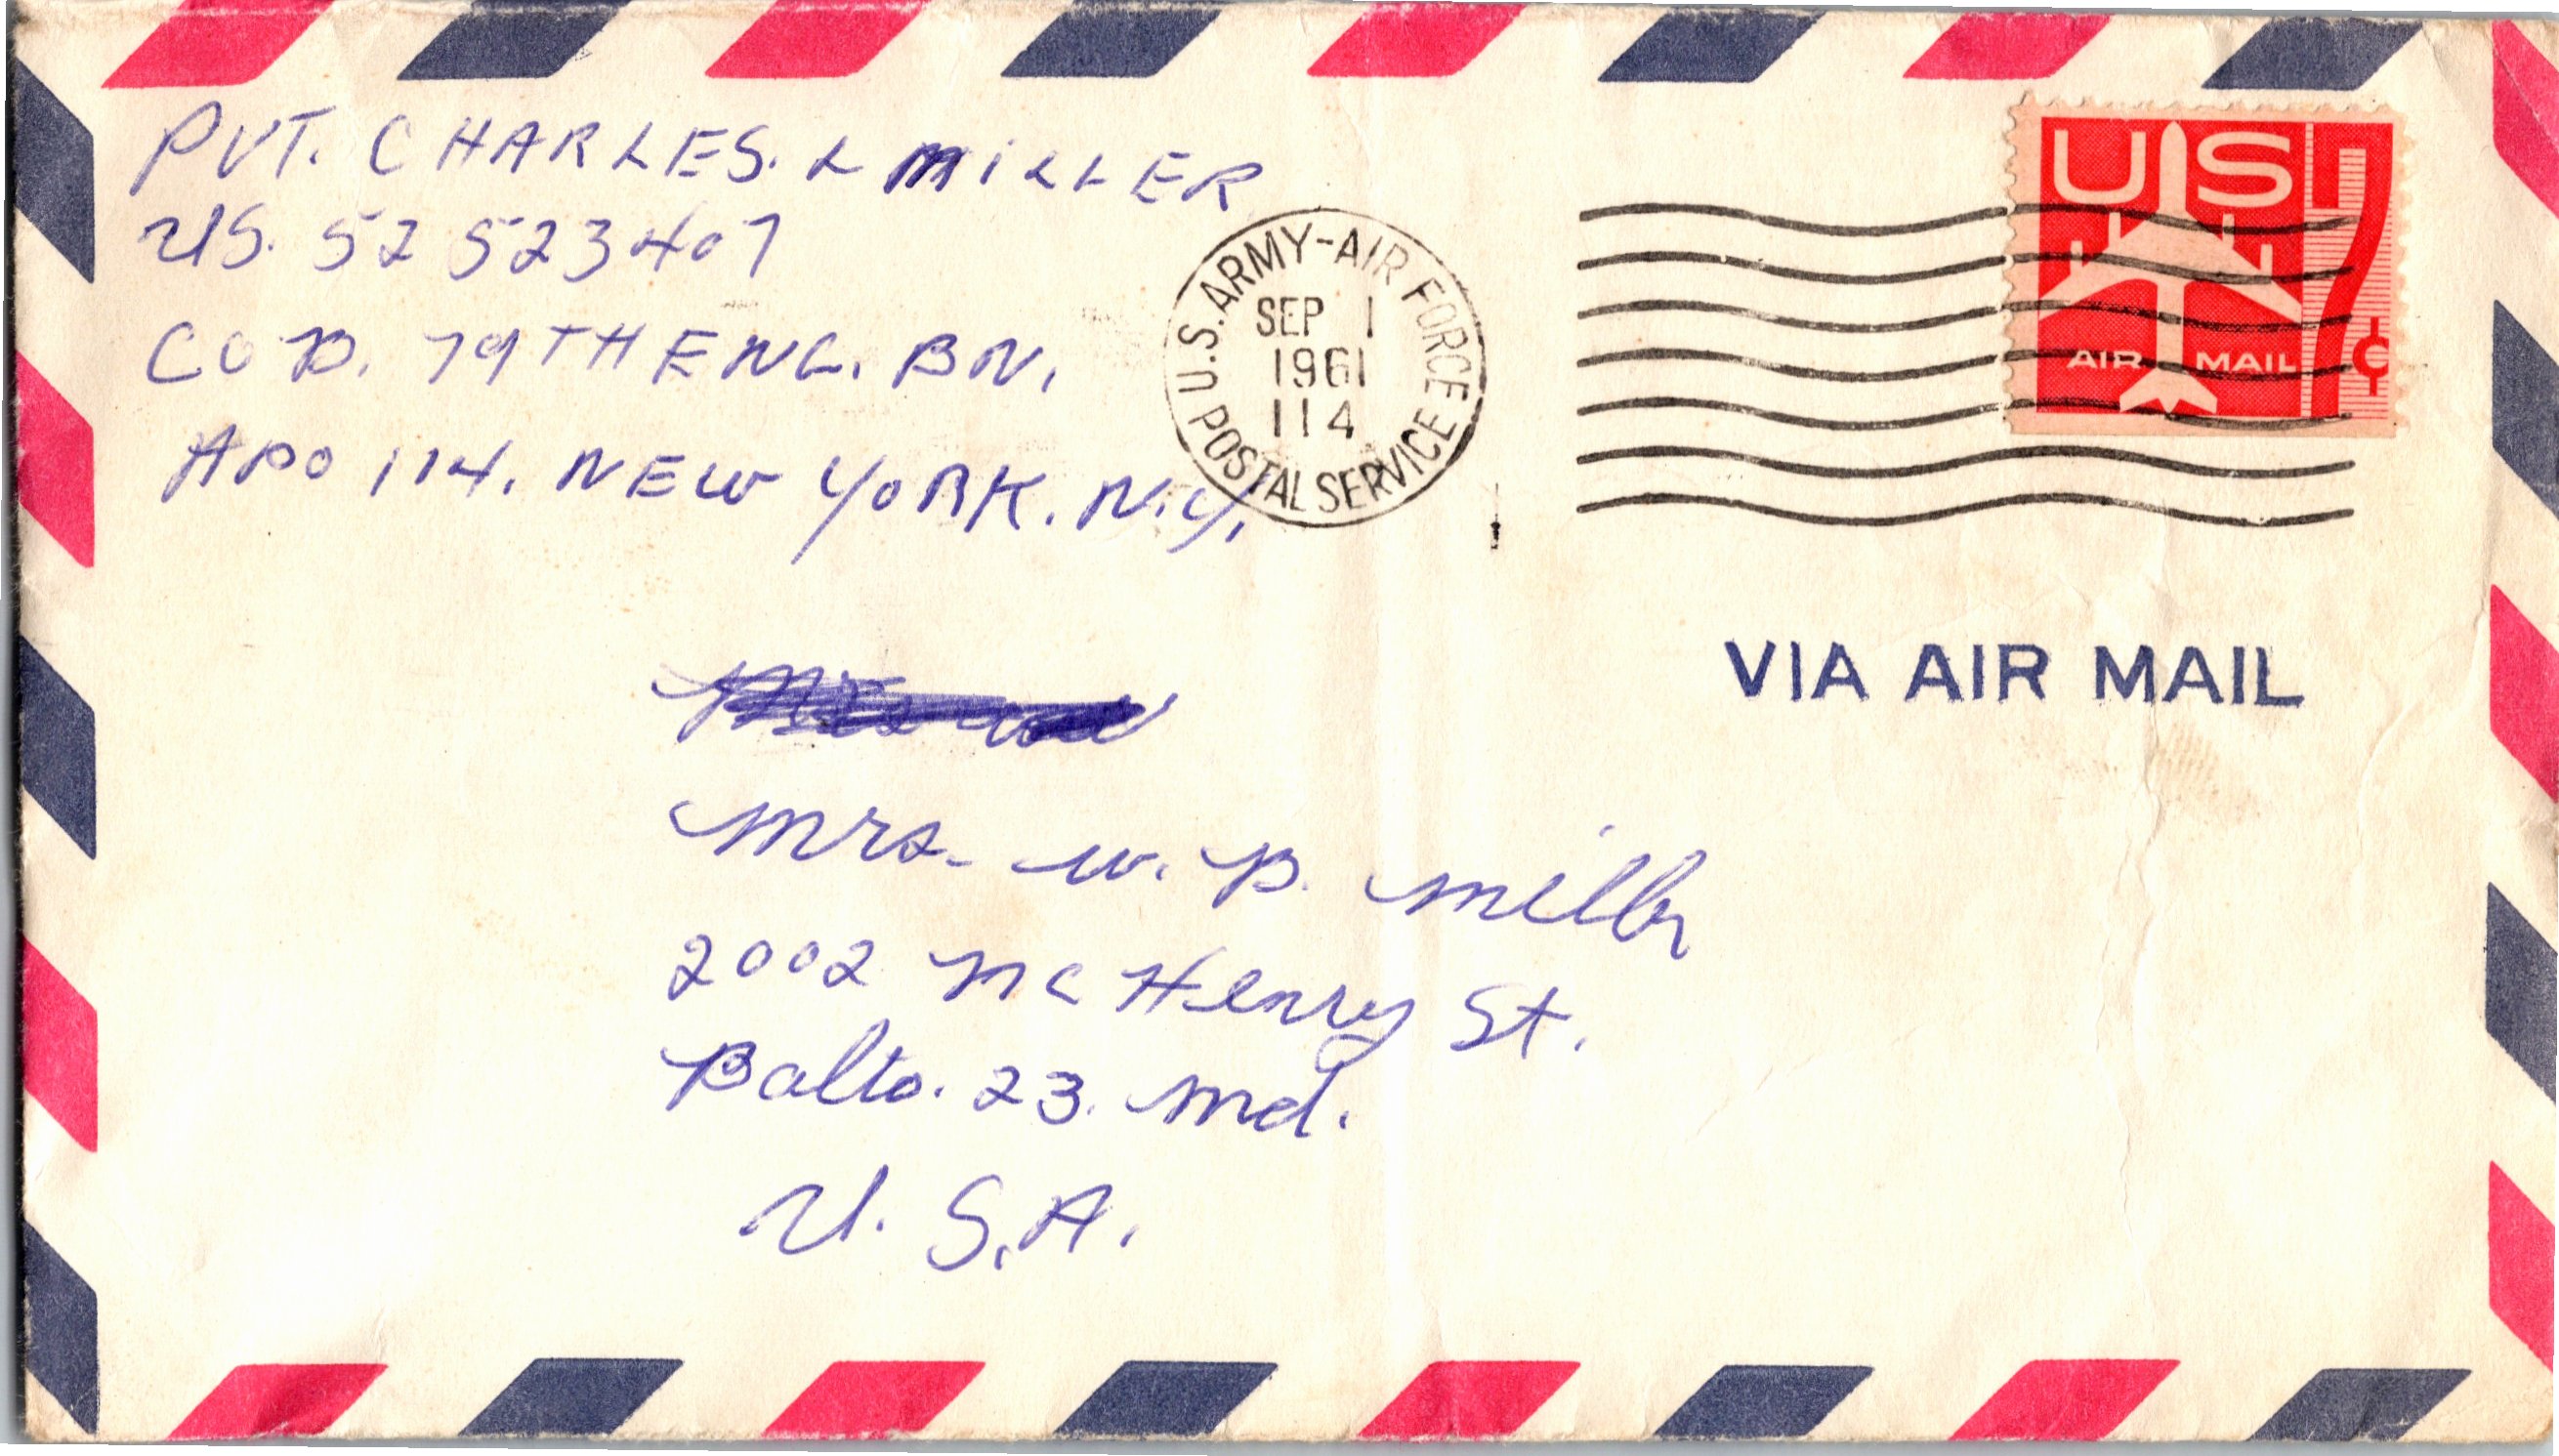 PVT. CHARLES. L MILLER
US. 52 523407
CO D. 79TH ENG. BN.
APO 114. NEW YORK. N.Y.
U.S. ARMY-AIR FORCE POSTAL SERVICE
SEP 1
1961
114
US 7¢
AIR MAIL
VIA AIR MAIL
Mrs. W. B. Miller
2002 McHenry St.
Balto. 23. Md.
U. S. A.